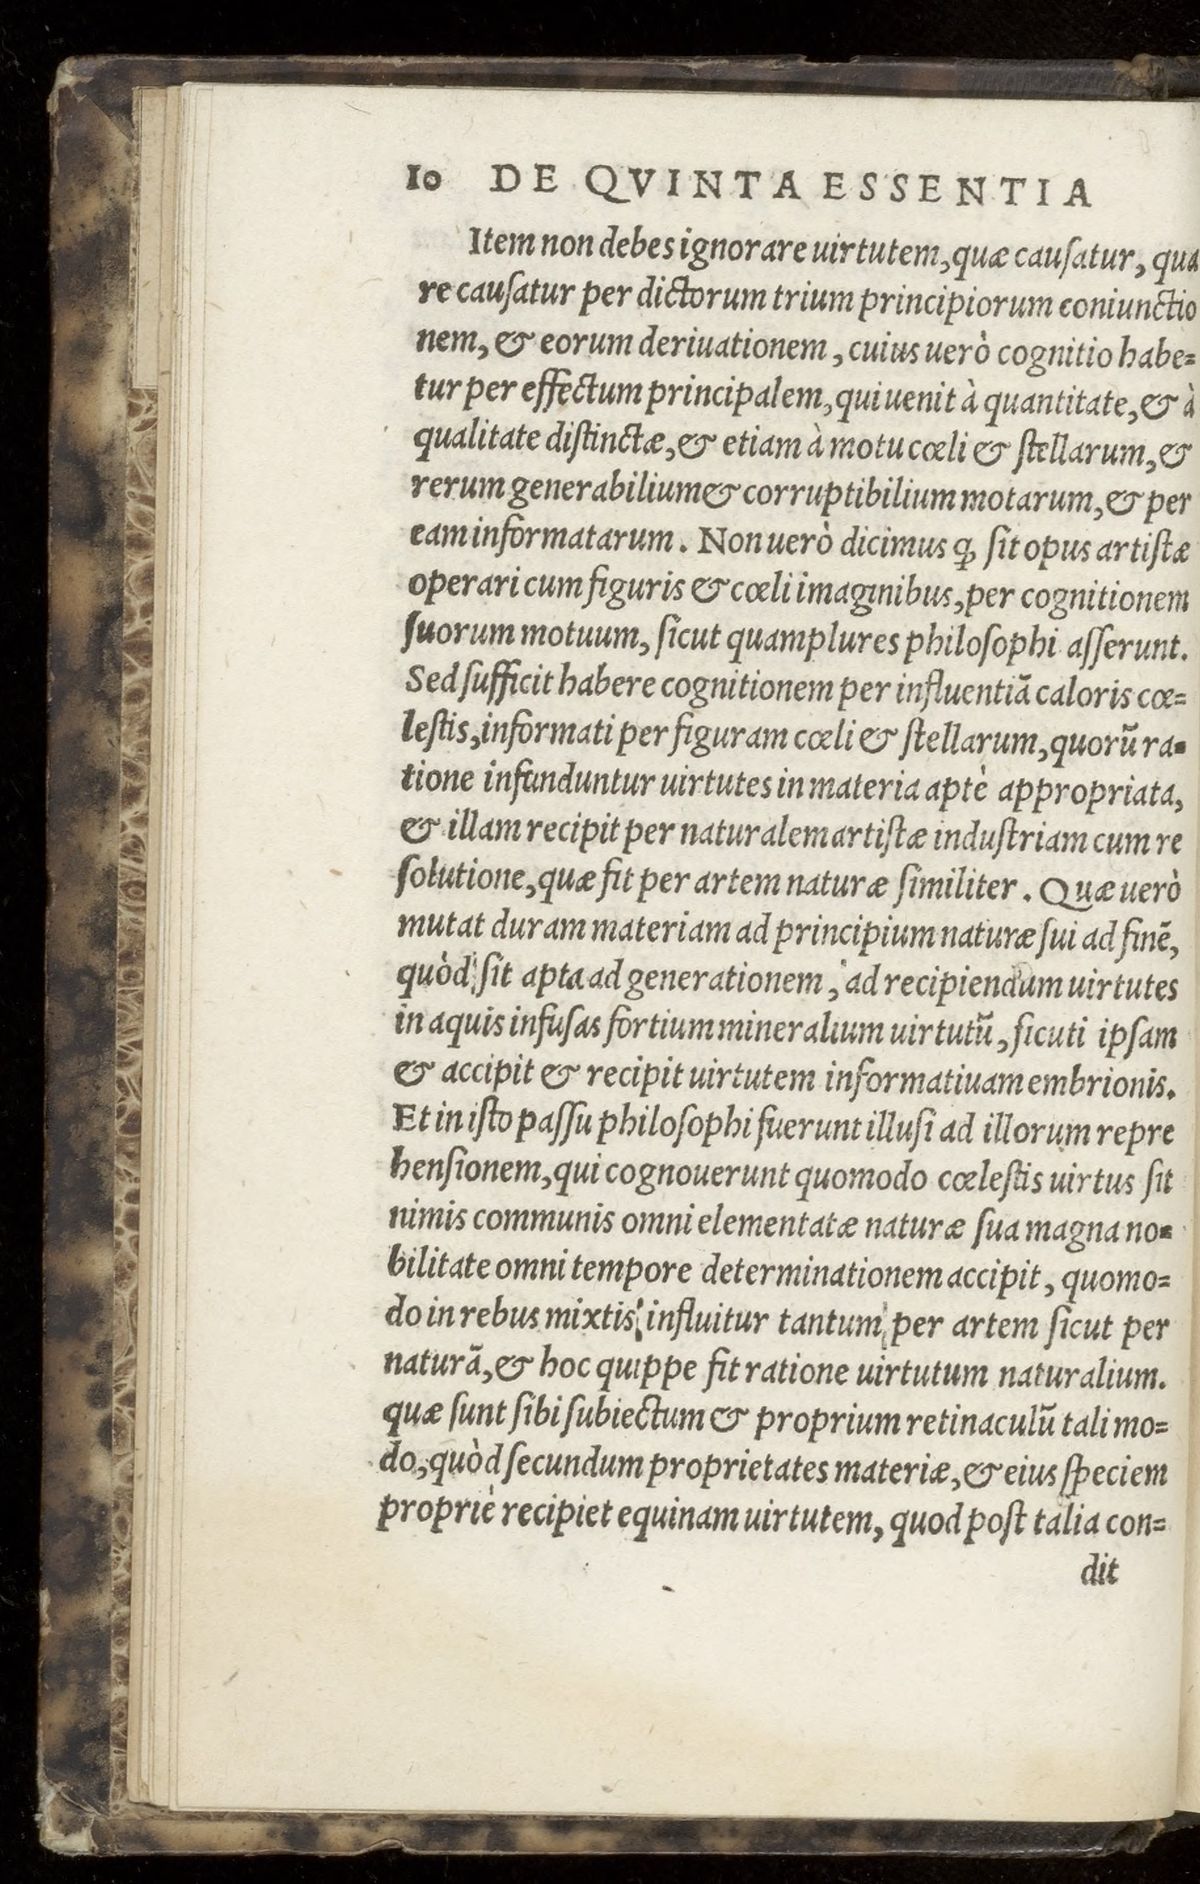 10 DE QVINTA ESSENTIA
Item non debes ignorare uirtutem, quæ causatur, qua
re causatur per dictorum trium principiorum coniunctio
nem, & eorum deriuationem, cuius uerò cognitio habe=
tur per effectum principalem, qui uenit à quantitate, & à
qualitate distinctæ, & etiam à motu cœli & stellarum, &
rerum generabilium & corruptibilium motarum, & per
eam informatarum. Non uerò dicimus ꝙ sit opus artistæ
operari cum figuris & cœli imaginibus, per cognitionem
suorum motuum, sicut quamplures philosophi asserunt.
Sed sufficit habere cognitionem per influentiã caloris cœ=
lestis, informati per figuram cœli & stellarum, quorũ ra=
tione infunduntur uirtutes in materia aptè appropriata,
& illam recipit per naturalem artistæ industriam cum re
solutione, quæ fit per artem naturæ similiter. Quæ uerò
mutat duram materiam ad principium naturæ sui ad finẽ,
quòd sit apta ad generationem, ad recipiendum uirtutes
in aquis infusas fortium mineralium uirtutũ, sicuti ipsam
& accipit & recipit uirtutem informatiuam embrionis.
Et in isto passu philosophi fuerunt illusi ad illorum repre
hensionem, qui cognouerunt quomodo cœlestis uirtus sit
nimis communis omni elementatæ naturæ sua magna no=
bilitate omni tempore determinationem accipit, quomo=
do in rebus mixtis influitur tantum per artem sicut per
naturã, & hoc quippe fit ratione uirtutum naturalium.
quæ sunt sibi subiectum & proprium retinaculũ tali mo=
do, quòd secundum proprietates materiæ, & eius speciem
propriè recipiet equinam uirtutem, quod post talia con=
dit